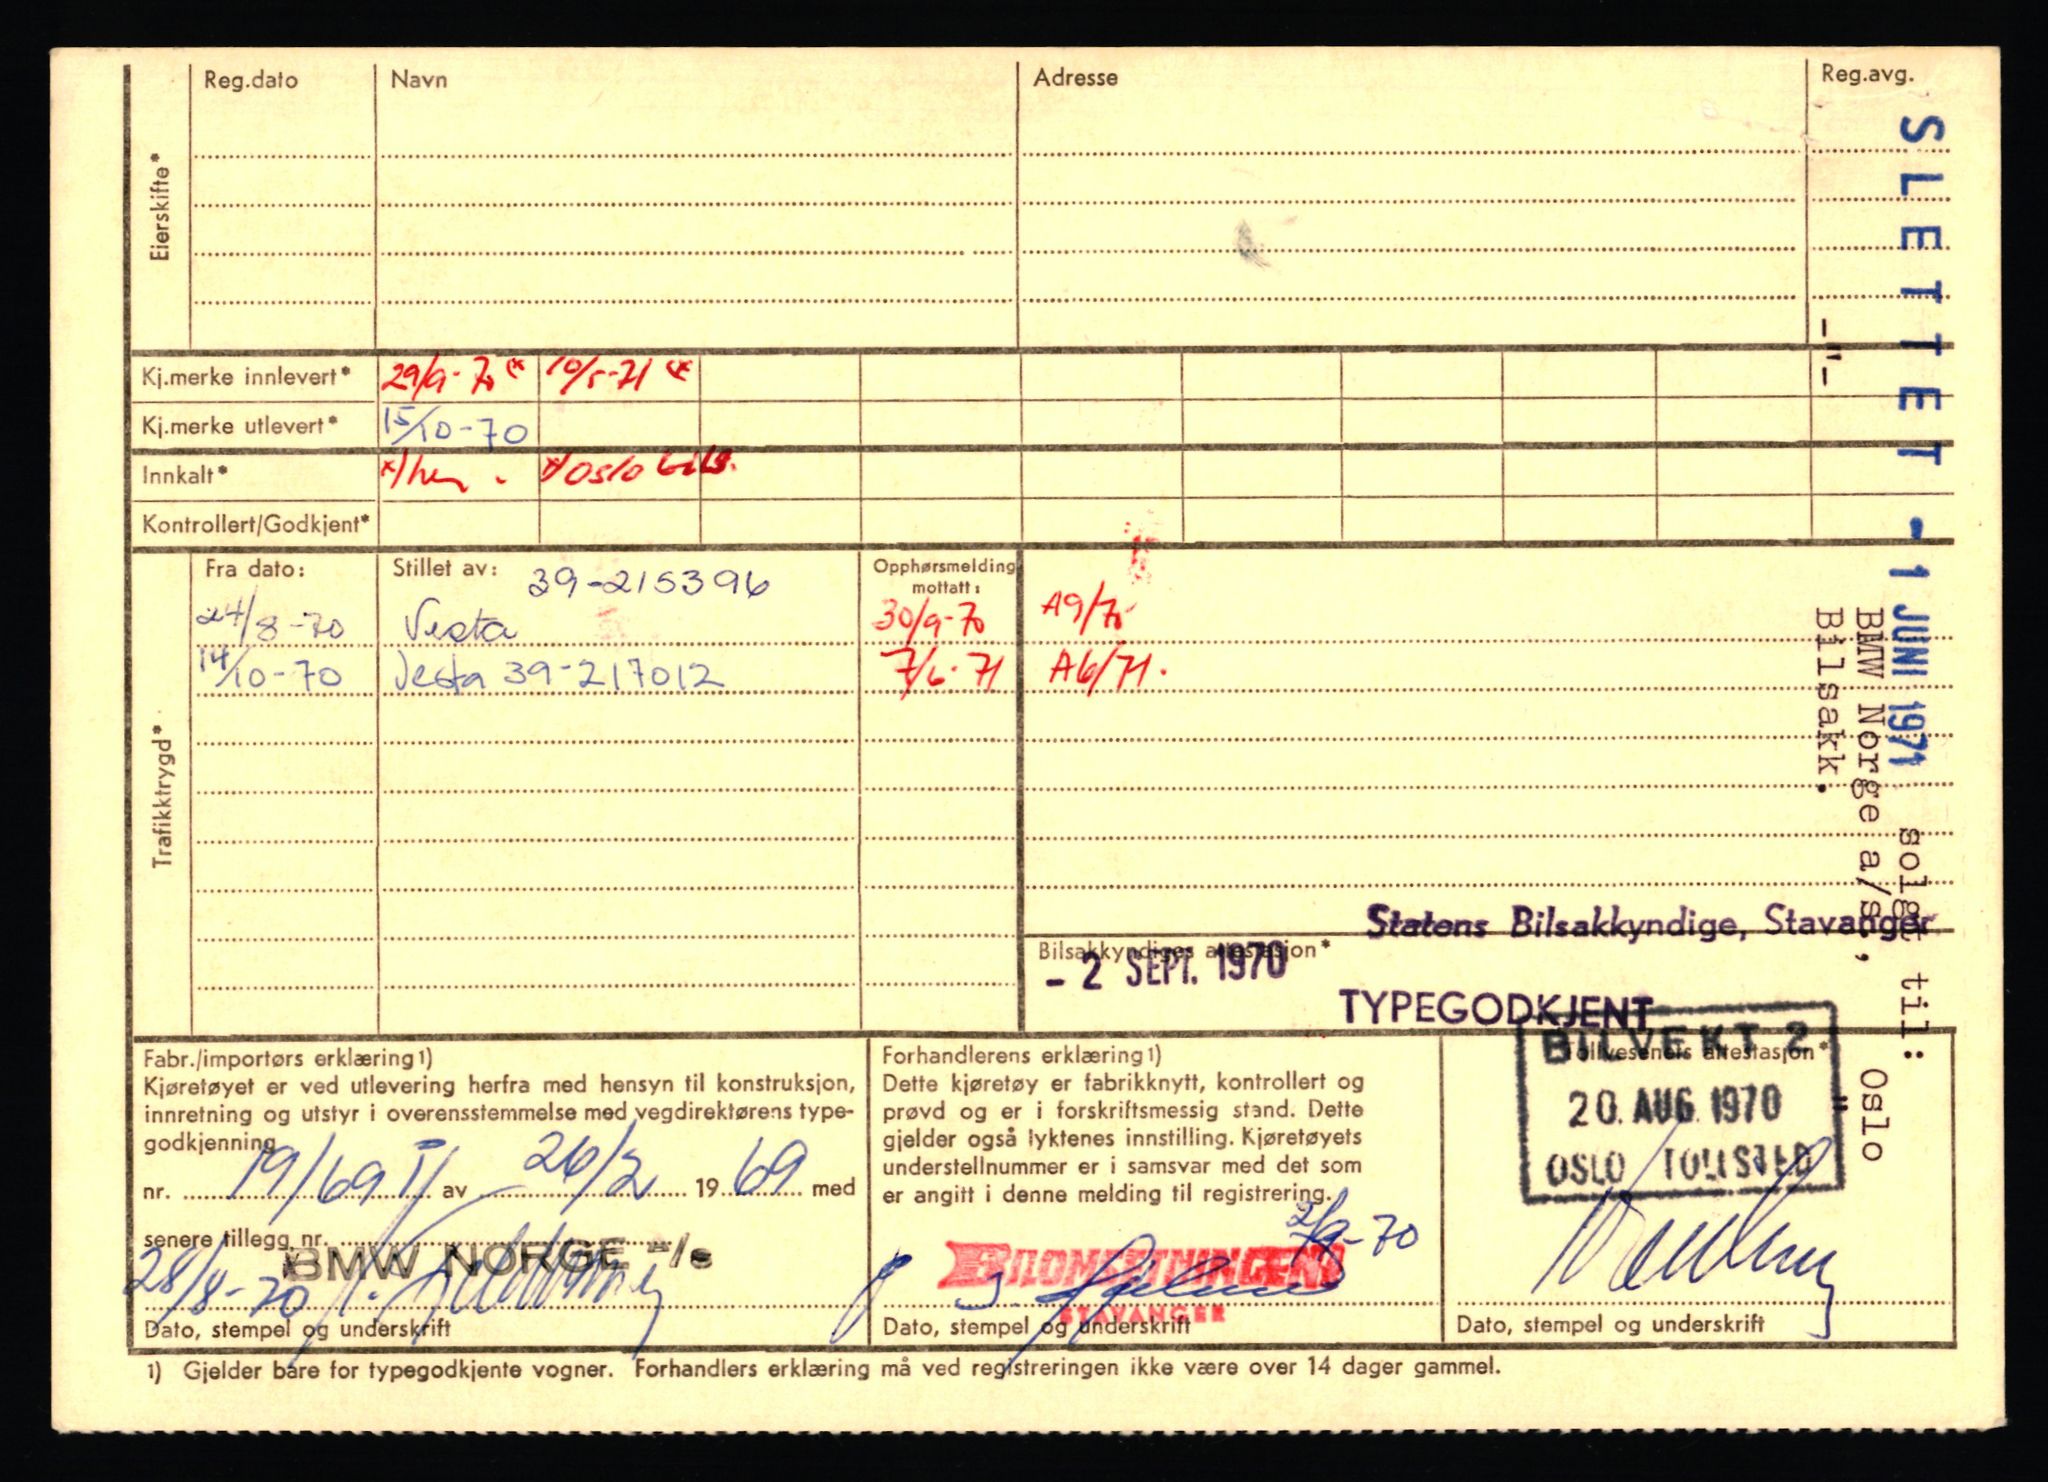 Reg.dato Navn Adresse Reg.avg.
Eierskifte*
Kj.merke innlevert* 29/9-70 (* 10/5-71 (*
Kj.merke utlevert* 15/10-70
Innkalt* */her. */Oslo bils.
Kontrollert/Godkjent*
Trafikktrygd*
Fra dato: Stillet av: 39-215396 Opphørsmelding
mottatt:
24/8-70 Vesta 30/9-70 A9/70
14/10-70 Vesta 39-217012 7/6-71 A6/71.
SLETTET - 1 JUNI 1971 solgt til:
BMW Norge a/s, Oslo
Bilsakk.
-"- "
Statens Bilsakkyndige, Stavanger
Bilsakkyndiges attestasjon*
- 2 SEPT. 1970
TYPEGODKJENT
Fabr./importørs erklæring1)
Kjøretøyet er ved utlevering herfra med hensyn til konstruksjon,
innretning og utstyr i overensstemmelse med vegdirektørens type-
godkjenning
nr. 19/69 I/ av 26/2 1969 med
senere tillegg nr.
BMW NORGE a/s
28/8-70
Dato, stempel og underskrift
Forhandlerens erklæring1)
Dette kjøretøy er fabrikknytt, kontrollert og
prøvd og er i forskriftsmessig stand. Dette
gjelder også lyktenes innstilling. Kjøretøyets
understellnummer er i samsvar med det som
er angitt i denne melding til registrering.
2/9-70
BILOMSETNINGEN
STAVANGER
Dato, stempel og underskrift
Tollvesenets attestasjon*
BILVEKT 2
20. AUG. 1970
OSLO TOLLSTED
Dato, stempel og underskrift
1) Gjelder bare for typegodkjente vogner. Forhandlers erklæring må ved registreringen ikke være over 14 dager gammel.